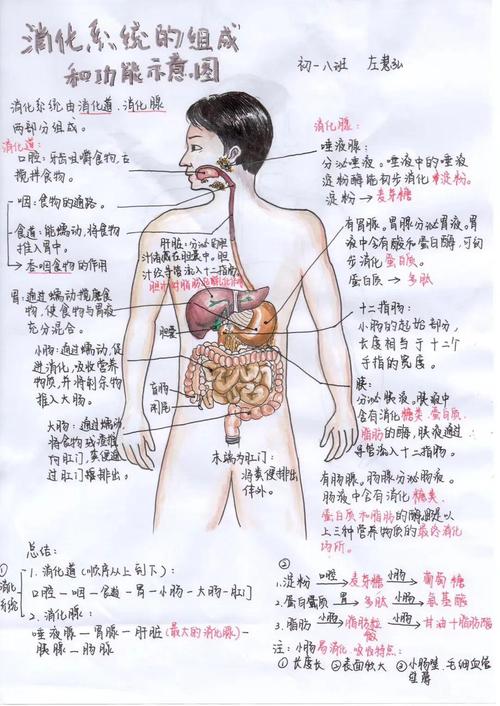 消化系统的组成
和功能示意图
初一八班 左慧泓
消化系统由消化道、消化腺
两部分组成。
消化道:
口腔:牙齿咀嚼食物,舌
搅拌食物。
咽:食物的通路。
食道:能蠕动,将食物
推入胃中。
吞咽食物的作用
胃:通过蠕动搅磨食
物,使食物与胃液
充分混合。
小肠:通过蠕动,促
进消化,吸收营养
物质,并将剩余物
推入大肠。
大肠:通过蠕动
将食物残渣推
向肛门,粪便通
过肛门排出
肝脏:分泌的胆
汁储藏在胆囊中。胆
汁经导管流入十二指肠
胆囊
盲肠
阑尾
末端为肛门:
将粪便排出
体外。
消化腺:
唾液腺:
分泌唾液。唾液中的唾液
淀粉酶能初步消化淀粉。
淀粉→麦芽糖
有胃腺。胃腺分泌胃液。胃
液中含有酸和蛋白酶,可初
步消化蛋白质。
蛋白质→多肽
十二指肠:
小肠的起始部分,
长度相当于十二个
手指的宽度。
胰:
分泌胰液。胰液中
含有消化糖类、蛋白质、
脂肪的酶,胰液通过
导管流入十二指肠。
有肠腺。肠腺分泌肠液。
肠液中含有消化糖类、
蛋白质和脂肪的酶,是以
上三种营养物质的最终消化
场所。
总结:
①
消化系统
1. 消化道(顺序从上到下):
口腔—咽—食道—胃—小肠—大肠—肛门
2. 消化腺:
唾液腺—胃腺—肝脏(最大的消化腺)—
胰腺—肠腺
②
1. 淀粉 口腔→ 麦芽糖 小肠→ 葡萄糖
2. 蛋白质 胃→ 多肽 小肠→ 氨基酸
3. 脂肪 小肠→ 脂肪微粒 小肠→ 甘油+脂肪酸
注:小肠易消化吸收特点:
①长度长 ②表面积大 ③小肠壁、毛细血管
壁薄